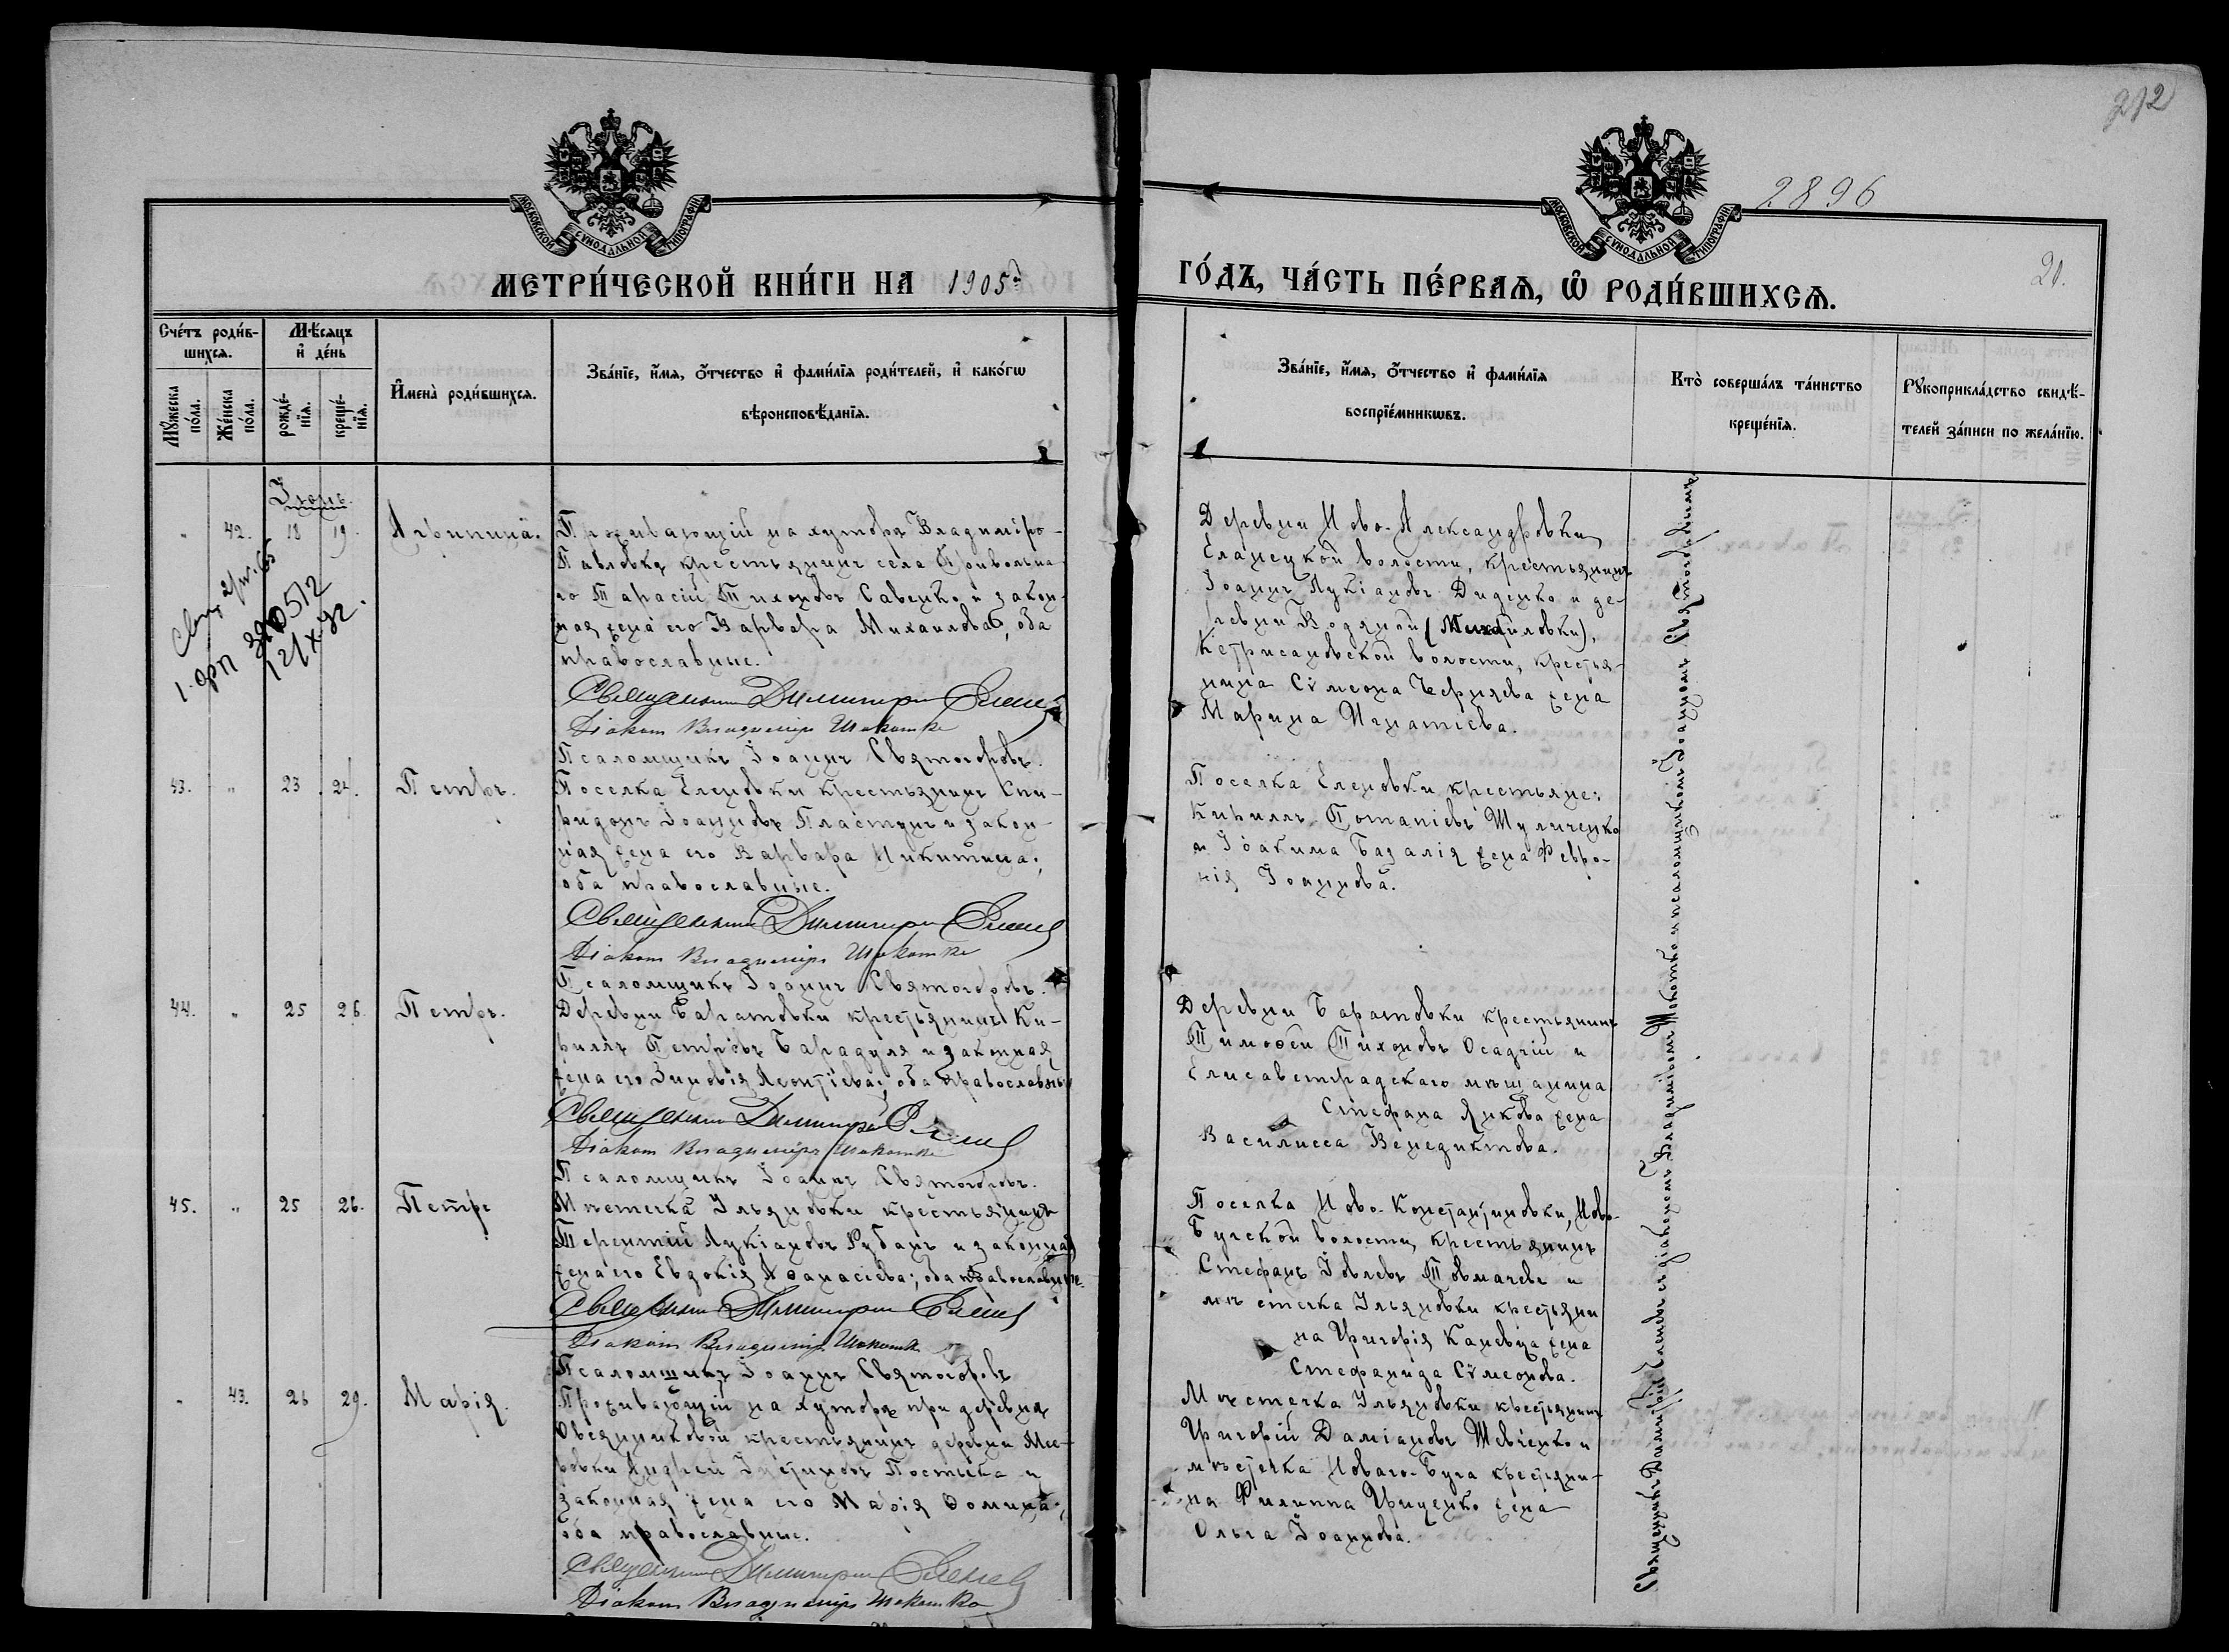 212
2896
20.
МОСКОВСКОЙ СѴНОДАЛЬНОЙ ТИПОГРАФІИ
МОСКОВСКОЙ СѴНОДАЛЬНОЙ ТИПОГРАФІИ
МЕТРИ́ЧЕСКОЙ КНИ́ГИ НА 1905 й
ГО́ДЪ, ЧА́СТЬ ПЕ́РВАѦ, Ѡ҆ РОДИ́ВШИХСѦ.
Сче́тъ роди́в-
шихсѧ.
Мѣ́сѧцъ
и҆ де́нь
Мꙋ́жеска по́ла.
Же́нска по́ла.
рожде́-
нїѧ.
креще́-
нїѧ.
И҆мена̀ роди́вшихсѧ.
Зва́нїе, и҆́мѧ, ѻ҆́тчество и҆ фами́лїѧ роди́телей, и҆ како́гѡ
вѣроисповѣ́данїѧ.
Зва́нїе, и҆́мѧ, ѻ҆́тчество и҆ фами́лїѧ
воспрїе́мникѡвъ.
Кто̀ соверша́лъ та́инство
креще́нїѧ.
Рꙋкоприкла́дство свидѣ́-
телей за́писи по жела́нїю.
Іюнь.
" 42. 18 19. Агрипина.
Проживающій на хуторѣ Владиміро-
Павловкѣ крестьянинъ села Привольна-
го Тарасій Тихоновъ Савенко и закон-
ная жена его Варвара Михаилова, оба
православные.
Священникъ Димитрій
Діаконъ Владиміръ Шокотко
Псаломщикъ Іоаннъ Святогоровъ.
Деревни Ново-Александровки,
Еланецкой волости, крестьянинъ
Іоаннъ Лукіановъ Диденко и де-
ревни Водяной (Михайловки),
Кетрисановской волости, крестья-
нина Сѵмеона Черняева жена
Марина Игнатіева.
43. " 23 24. Петръ.
Поселка Еленовки крестьянинъ Спи-
ридонъ Іоанновъ Пластунъ и закон-
ная жена его Варвара Никитина;
оба православные.
Священникъ Димитрій
Діаконъ Владиміръ Шокотко
Псаломщикъ Іоаннъ Святогоровъ.
Поселка Еленовки крестьяне:
Кириллъ Потапіевъ Шуличенко
и Іоакима Базалія жена Февро-
нія Іоаннова.
44. " 25 26. Петръ.
Деревни Баратовки крестьянинъ Ки-
риллъ Петровъ Барадуля и законная
жена его Зиновія Леонтіева; оба православные
Священникъ Димитрій
Діаконъ Владиміръ Шокотко
Псаломщикъ Іоаннъ Святогоровъ.
Деревни Баратовки крестьянинъ
Тимоѳей Тихоновъ Осадчій и
Елисаветградскаго мѣщанина
Стефана Янкова жена
Василисса Венедиктова.
45. " 25 26. Петръ
Мѣстечка Ульяновки крестьянинъ
Терентій Лукіановъ Рубанъ и законная
жена его Евдокія Аѳанасіева; оба православные.
Священникъ Димитрій
Діаконъ Владиміръ Шокотко
Псаломщикъ Іоаннъ Святогоровъ
Поселка Ново-Константиновки, Ново-
Бугской волости, крестьянинъ
Стефанъ Іовлевъ Товмачевъ и
мѣстечка Ульяновки крестьяни
на Григорія Каневца жена
Стефанида Сѵмеонова.
" 43. 26 29. Марія.
Проживающій на хуторѣ при деревнѣ
Овсянниковой крестьянинъ деревни
Андрей Іустиновъ Постыка и
законная жена его Марія Ѳомина;
оба православные.
Священникъ Димитрій
Діаконъ Владиміръ Шокотко
Мѣстечка Ульяновки крестьянинъ
Григорій Даміановъ Шевченко и
мѣстечка Новаго-Буга крестьяни-
на Филиппа Гриценко жена
Ольга Іоаннова.
Священникъ Димитрій съ діакономъ Владиміромъ Шокотко и псаломщикомъ Іоанномъ Святогоровымъ